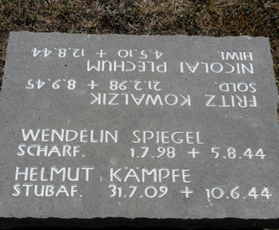 FRITZ KOWALZIK
SOLD. 21.2.98 + 8.9.45
NICOLAI PLECHUM
HIWI. 4.5.10 + 12.8.44
WENDELIN SPIEGEL
SCHARF. 1.7.98 + 5.8.44
HELMUT KÄMPFE
STUBAF. 31.7.09 + 10.6.44